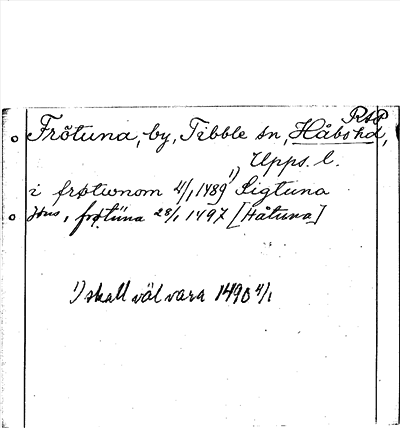 RAP
Frötuna, by, Tibble sn, Håbo hd,
Upps. l.
i frøtwnom 4/1 1489 1) Sigtuna
dns, frøtüna 28/1 1497 [Håtuna]
1) skall väl vara 1490 4/1